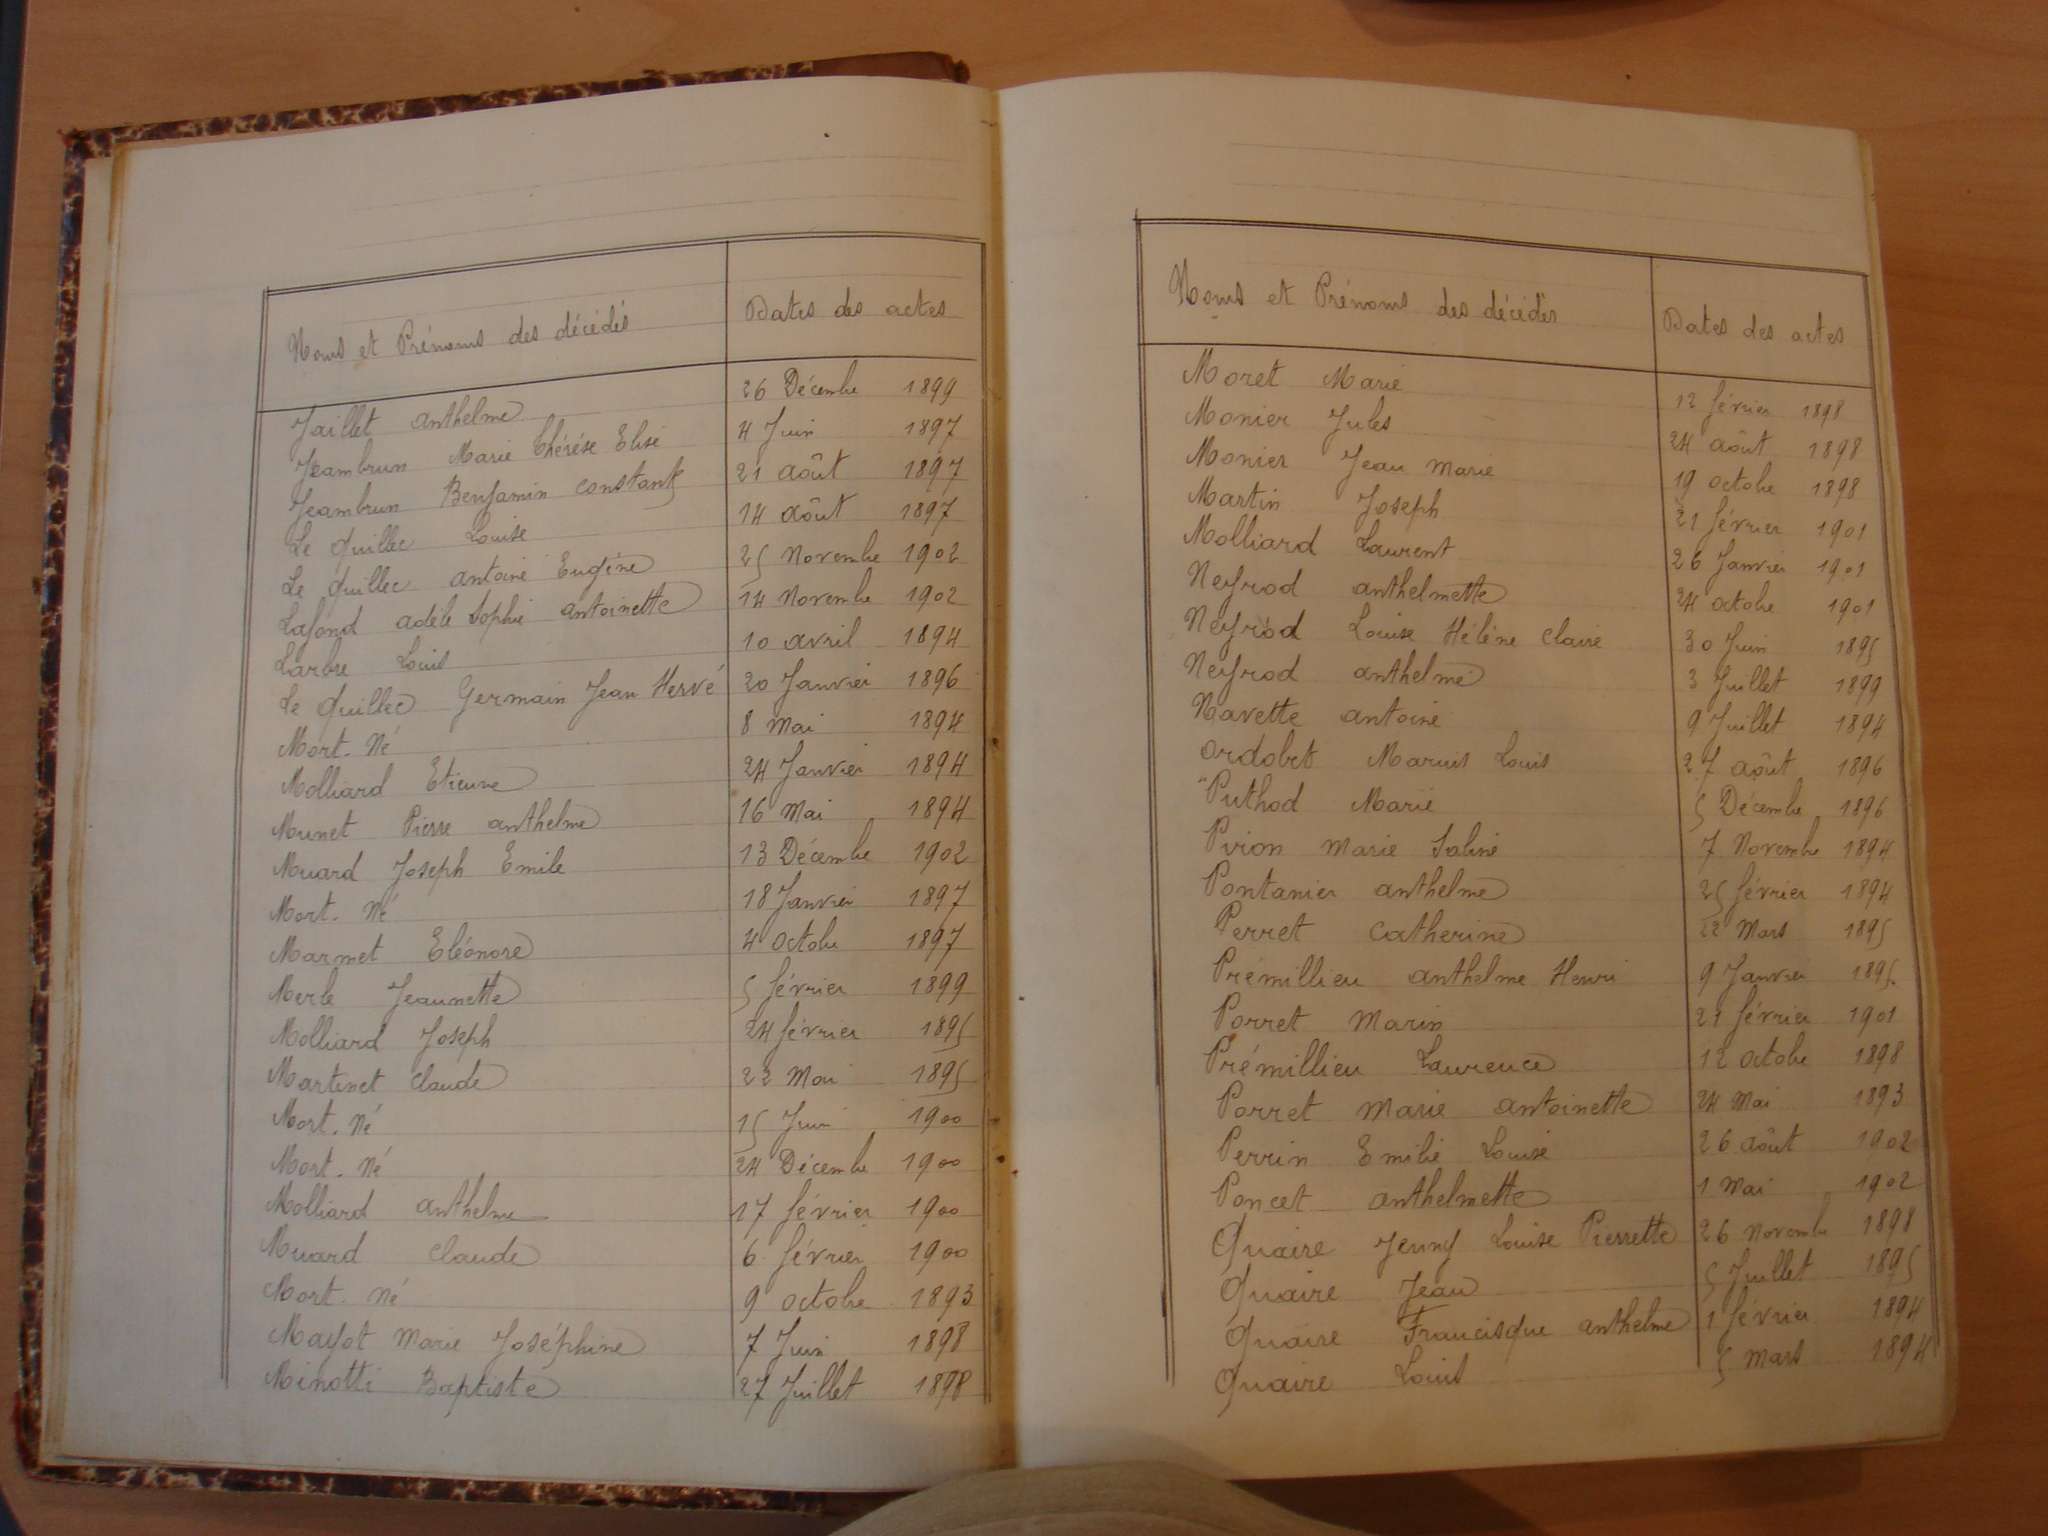 Noms et Prénoms des décédés Dates des actes
Jaillet anthelme 26 Décembre 1899
Jeambrun Marie Thérèse Elise 4 Juin 1897
Jeambrun Benjamin constant 21 août 1897
Le Quillec Louise 14 août 1897
Le Quillec antoine Eugène 25 Novembre 1902
Lafond adèle Sophie antoinette 14 Novembre 1902
Larbre Louis 10 avril 1894
Le Quillec Germain Jean Hervé 20 Janvier 1896
Mort. Né 8 mai 1894
Molliard Etienne 24 Janvier 1894
Munet Pierre anthelme 16 Mai 1894
Muard Joseph Emile 13 Décembre 1902
Mort. Né 18 Janvier 1897
Marmet Eléonore 4 octobre 1897
Merle Jeannette 5 février 1899
Molliard Joseph 24 février 1895
Martinet claude 22 Mai 1895
Mort. Né 15 Juin 1900
Mort. Né 24 Décembre 1900
Molliard anthelme 17 février 1900
Muard claude 6 février 1900
Mort. né 9 octobre 1893
Mayot Marie Joséphine 7 Juin 1898
Minotti Baptiste 27 Juillet 1898
Noms et Prénoms des décédés Dates des actes
Moret Marie 12 février 1898
Monier Jules 24 août 1898
Monier Jean Marie 19 octobre 1898
Martin Joseph 21 février 1901
Molliard Laurent 26 Janvier 1901
Neyrod anthelmette 24 octobre 1901
Neyrod Louise Hélène claire 30 Juin 1895
Neyrod anthelme 3 Juillet 1899
Navette antoine 9 Juillet 1894
Marius Louis 27 août 1896
Puthod Marie 5 Décembre 1896
Pivion marie Saline 7 Novembre 1894
Pontanier anthelme 25 février 1894
Perret catherine 22 Mars 1895
Prémillieu anthelme Henri 9 Janvier 1895
Porret Marin 21 février 1901
Prémillieu Laurence 12 octobre 1898
Porret marie antoinette 24 Mai 1893
Perrin Emilie Louise 26 août 1902
Poncet anthelmette 1 Mai 1902
Quaire Jenny Louise Pierrette 26 novembre 1898
Quaire Jean 5 Juillet 1895
Quaire Francisque anthelme 1 février 1894
Quaire Louis 5 mars 1894